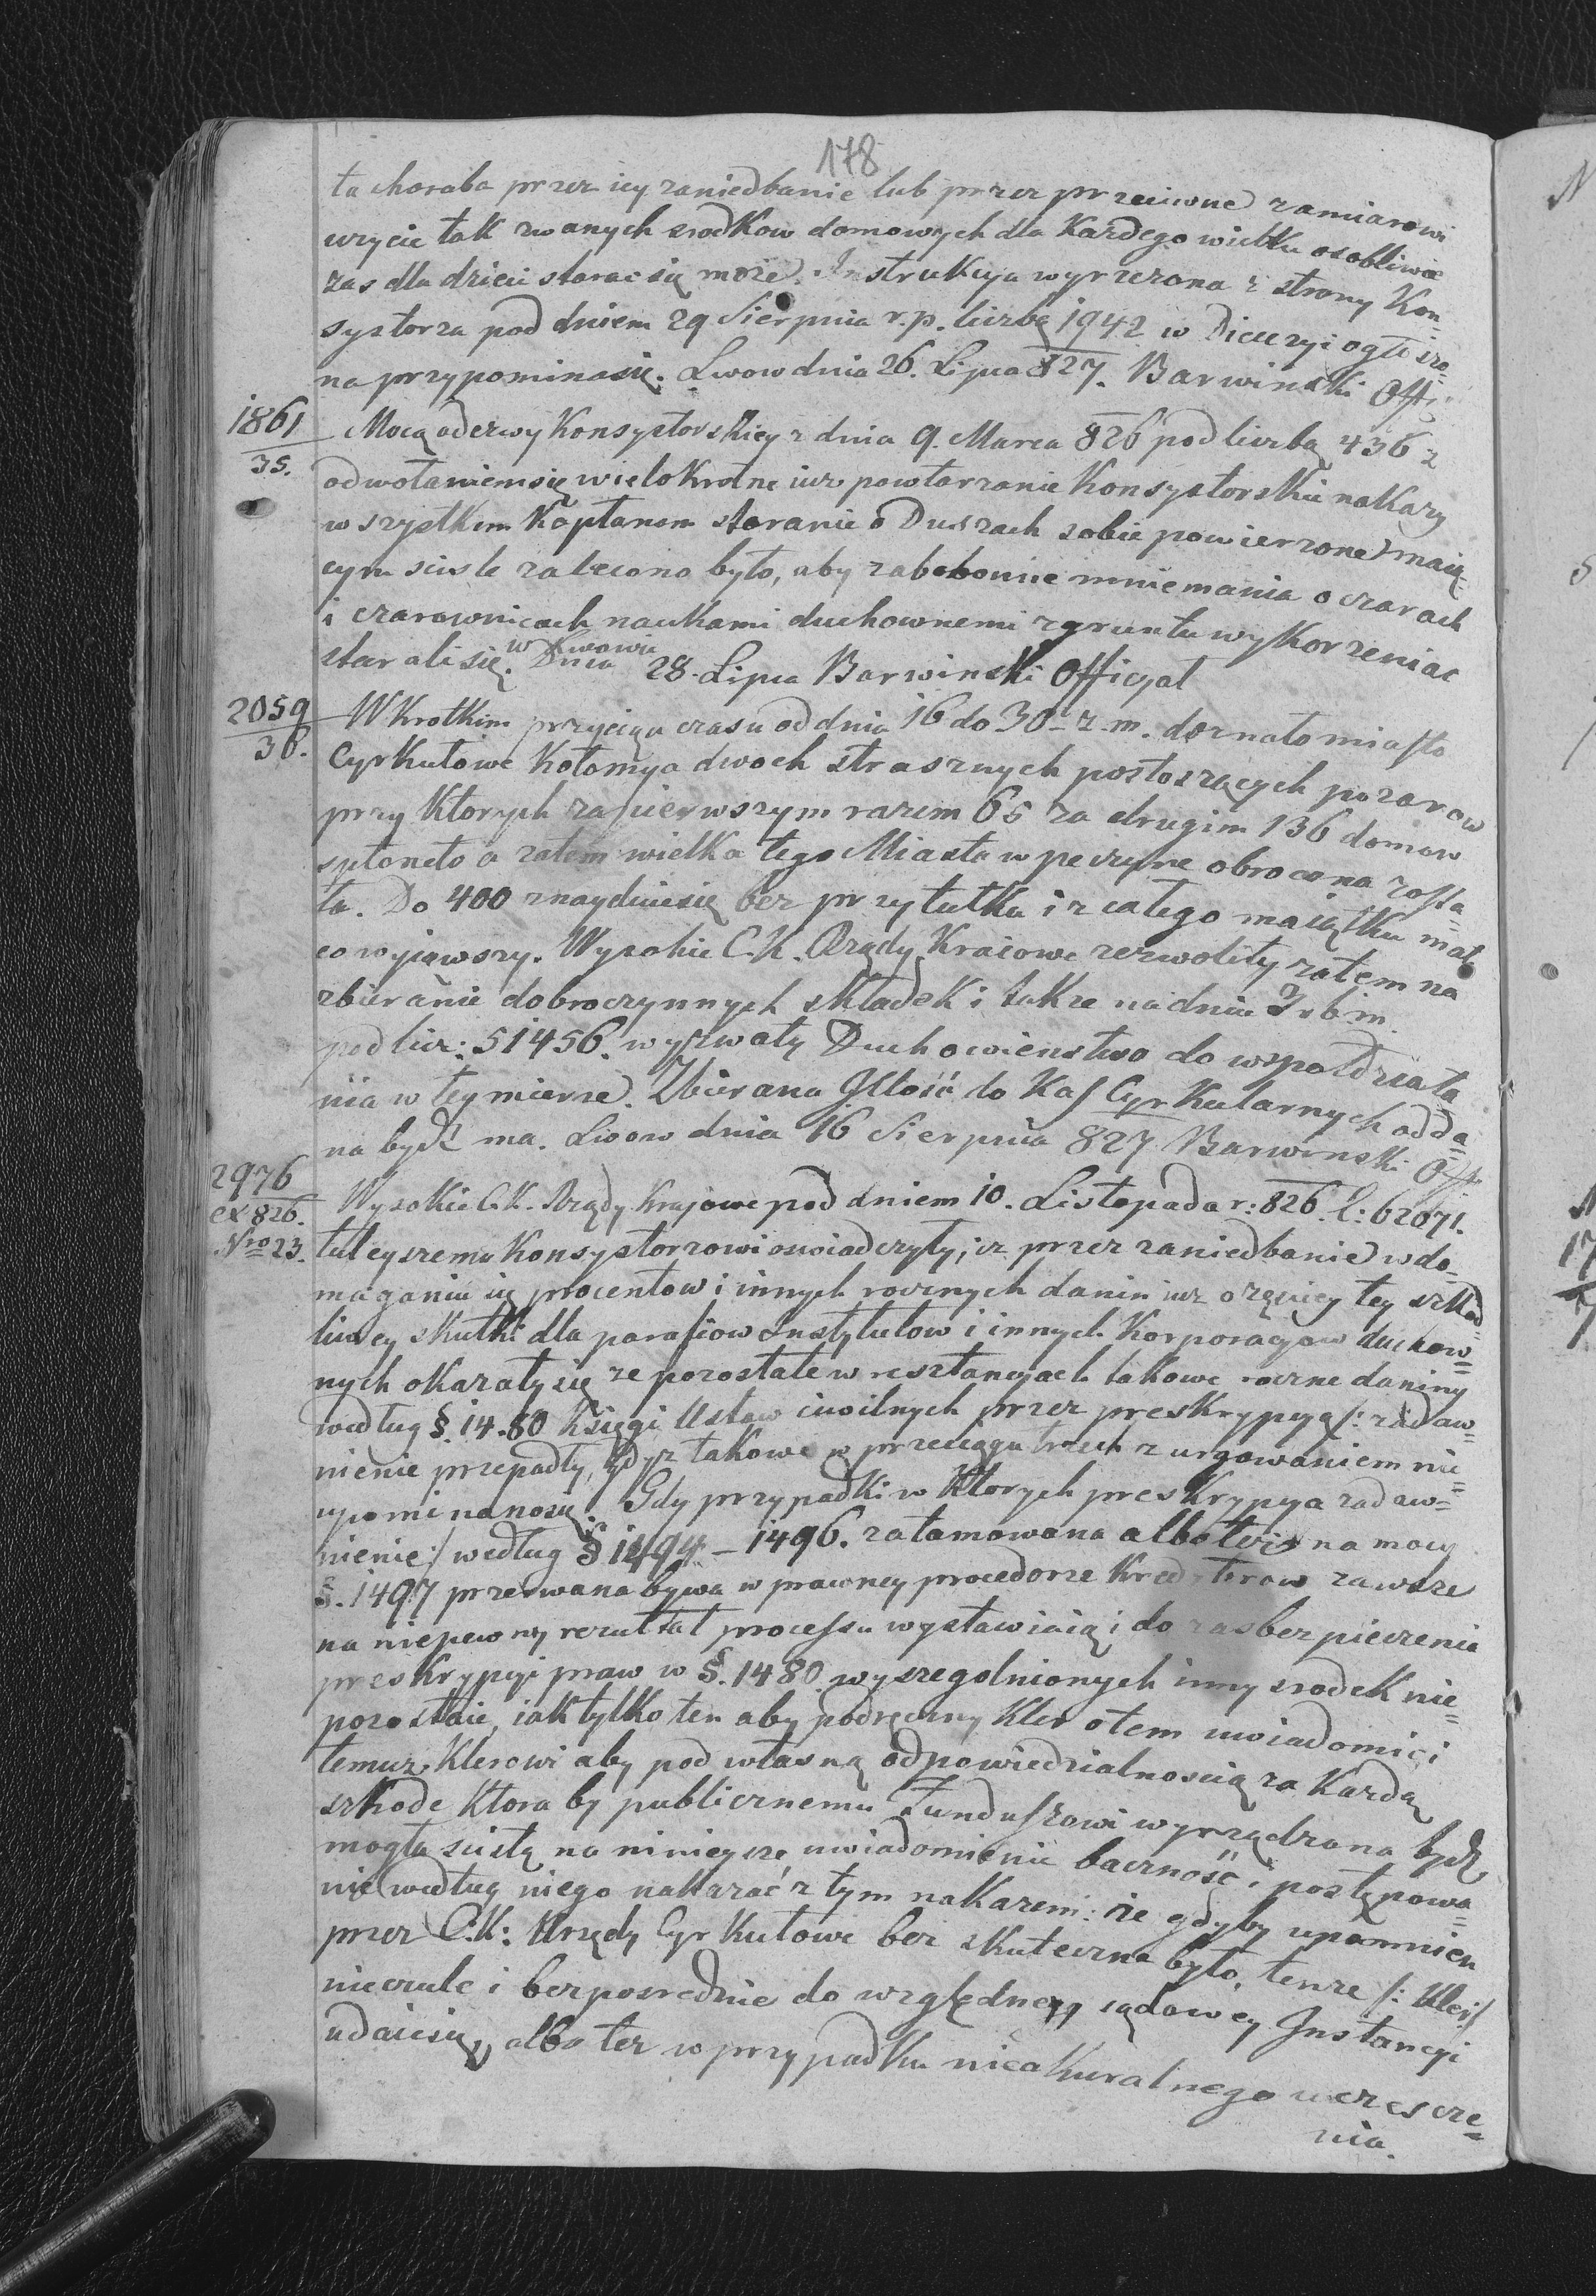 178
ta choroba przez iey zaniedbanie lub przez przeciwne zamiarowi
uzycie tak zwanych srodkow domowych dla Każdego wieku osobliwie
zas dla dzieci starac się może. Instrukcya wyrzezona z strony Kon-
systorza pod dniem 29 Sierpnia r. p. liczbą 1942 w Diecezyi ogłoszo-
na przypomina się. Lwow dnia 26. Lipca 827. Barwinski Offi
1861
35.
Mocą odezwy Konsystorskiey z dnia 9. Marca 826 pod liczbą 436 z
odwołaniem się wielokrotne iuz powtarzanie Konsystorskie nakazy
wszystkim Kapłanom staranie o Duszach sobie powierzone maią-
cym scisle zalecono było, aby zabobonne mniemania o czarach
i czarownicach naukami duchownemi zgruntu wykorzeniac
starali się. w Lwowie Dnia 28. Lipca Barwinski Officyał
2059
36.
W Krotkim przeciągu czasu od dnia 16 do 30 z. m. doznało miasto
Cyrkułowe Kołomya dwoch strasznych postoszących pozarow
przy Ktorych za pierwszym razem 65 za drugim 136 domow
spłoneło a zatem wielka tego Miasta w perzyne obrocona zosta-
ła. Do 400 znayduie się bez przytułku i z całego maiątku mał
co wyiąwszy. Wysokie C. K. Rządy Kraiowe zezwoliły zatem na
zbieranie dobroczynnych składek i takze na dniu 7 b. m.
pod licz: 51456. wyzwały Duchowienstwo do wspołdziała
nia w tey mierze. Zbierana Jłość do Kass Cyrkularnych odda-
na bydź ma. Lwow dnia 16 Sierpnia 827 Barwinski Off.
2976
ex 826.
Nro 23.
Wysokie C. K. Rządy Krajowe pod dniem 10. Listopada r: 826. l: 62071.
tuteyszemu Konsystorzowi oswiadczyły; iz przez zaniedbanie w do-
maganiu się procentow i innych rocznych danin iuz częściey tey szkod-
liwey skutki dla parafiow instytutow i innych Korporacyow duchow-
nych okazały się ze pozostałe w resztancyach takowe roczne daniny
według §. 14.80 Księgi Ustaw ciwilnych przez preskrypcyą /: zadaw-
nienie przepadły, gdyz takowe w przeciągu trzech z urgowaniem nie-
upominano się. Gdy przypadki w Ktorych preskrypcya zadaw-
nienie :/ według § 1494 - 1496. zatamowana albo tez na mocy
§. 1497 przerwana bywa w prawney procedorze Kredytorow zawsze
na niepewny rezultat processu wystawiaią i do zasbezpieczenia
preskrypcyi praw w §. 1480 wyszegolnionych inny srodek nie-
pozostaie, iak tylko ten aby podręczny Kler o tem uwiadomic i
temuz Klerowi aby pod własną odpowiedzialnoscią za Karzdą
szkode Ktora by publicznemu Funduszowi wyrządzona bydz
mogła scisłą na niniejsze uwiadomienie bacznośc i postępowa-
nie według niego nakazać z tym nakazem: że gdyby upomnien
przez C: K: Urzędy Cyrkułowe bez skuteczne było, tenze /: Kler :/
nieczule i bezposrednie do względney sądowey Jnstancyi
udaie się, albo tez w przypadku nieakuratnego uczescze-
nia.